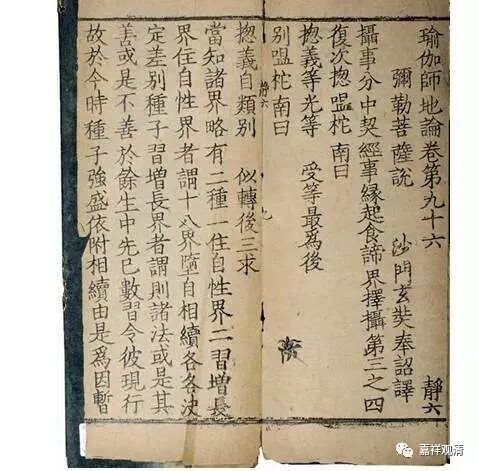 瑜伽師地論卷第九十六 靜六
彌勒菩薩說 沙門玄奘奉詔譯
攝事分中契經事縁起食諦界擇攝第三之四
復次揔嗢柁南曰
揔義等光等 受等最為後
靜六 九
別嗢柁南曰
揔義自類別 似轉後三求
當知諸界略有二種一住自性界二習增長
界住自性界者謂十八界墮自相續各各決
定差別種子習增長界者謂則諸法或是其
善或是不善於餘生中先已數習令彼現行
故於今時種子強盛依附相續由是爲因暫
嘉祥观清